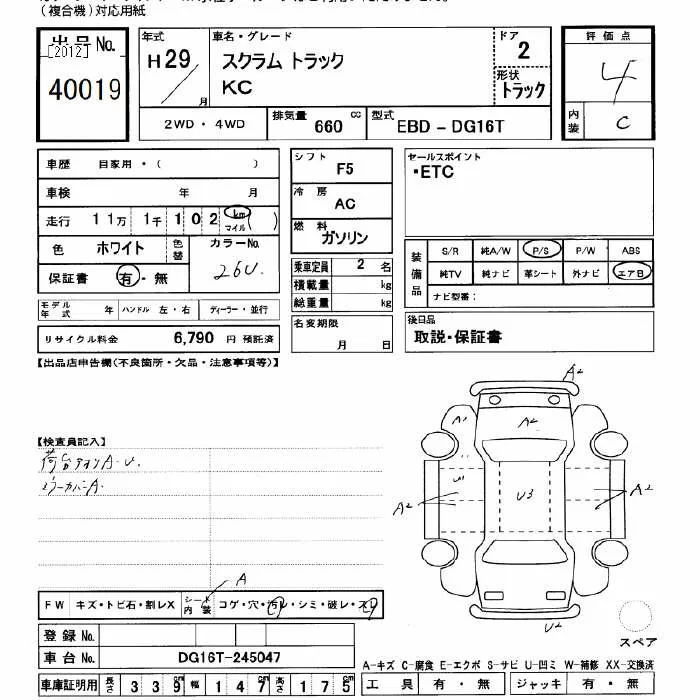 (複合機)対応用紙
出品No.
[2012]
40019
年式
H29
月
車名・グレード
スクラム トラック
KC
ドア
2
形状
トラック
評価点
4
内装
C
2WD・4WD
排気量 660 cc
型式 EBD-DG16T
車歴 自家用・( )
車検 年 月
走行 11万 1千 102 km マイル( )
色 ホワイト
色替
カラーNo.
26U
保証書 有・無
モデル年式 年
ハンドル 左・右
ディーラー・並行
リサイクル料金 6,790 円 預託済
シフト
F5
冷房
AC
燃料
ガソリン
乗車定員 2 名
積載量 kg
総重量 kg
名変期限
月 日
セールスポイント
・ETC
装備品
S/R 純A/W P/S P/W ABS
純TV 純ナビ 革シート 外ナビ エアB
ナビ型番:
後日品
取説・保証書
【出品店申告欄(不良箇所・欠品・注意事項等)】
【検査員記入】
荷台アオリA・U.
ミラーカバーA.
A2
A1
A2
U1
U3
A2
A2
U2
スペア
A
FW キズ・トビ石・割レX
シート内装
コゲ・穴・汚レ・シミ・破レ・スレ
登録No.
車台No. DG16T-245047
車庫証明用 長さ 339 幅 147 高さ 175
A-キズ C-腐食 E-エクボ S-サビ U-凹ミ W-補修 XX-交換済
工具 有・無
ジャッキ 有・無